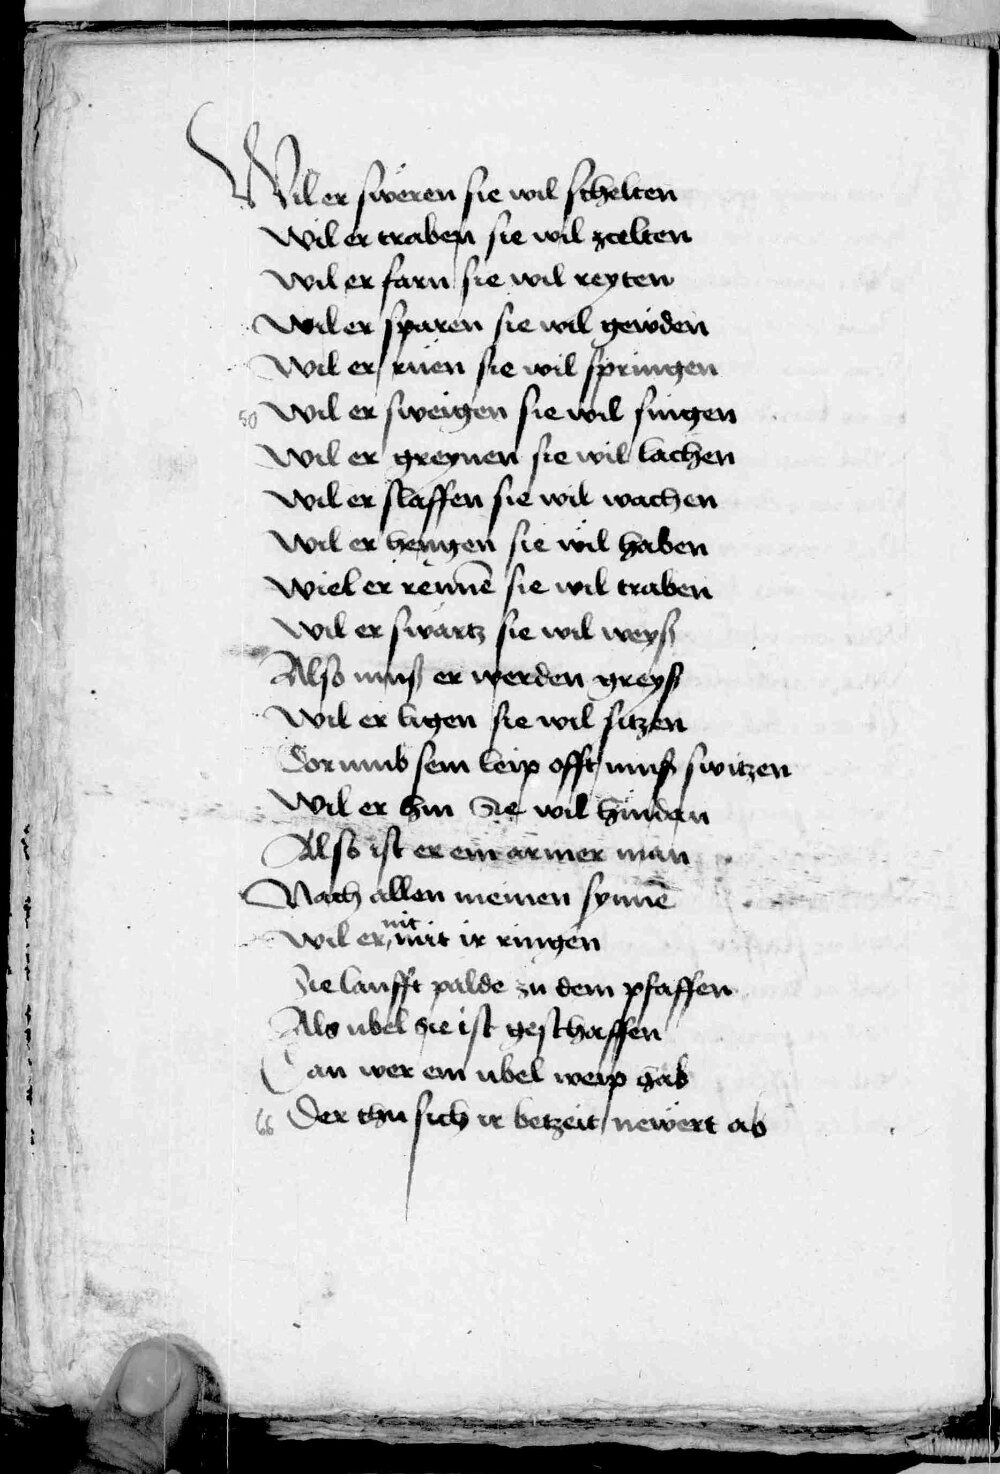 Wil er sweren sie wil schelten
Wil er traben sie wil zcelten
Wil er farn sie wil reyten
Wil er sparen sie wil gewden
Wil er ruen sie wil springen
50 Wil er sweigen sie wil singen
Wil er greynen sie wil lachen
Wil er slaffen sie wil wachen
Wil er hengen sie wil haben
Wiel er rennē sie wil traben
Wil er swartz sie wil weyß
Also muß er werden greyß
Wil er ligen sie wil sitzen
Dorumb sein leip offt muß switzen
Wil er hin Sie wil hinden
Also ist er ein armer man
Nach allen meinen synnē
Wil er nit mit ir ringen
Sie laufft palde zu dem pfaffen
Als ubel sie ist geschaffen
Dan wer ein ubel weip hab
66 Der thu sich ir betzeit newert ab